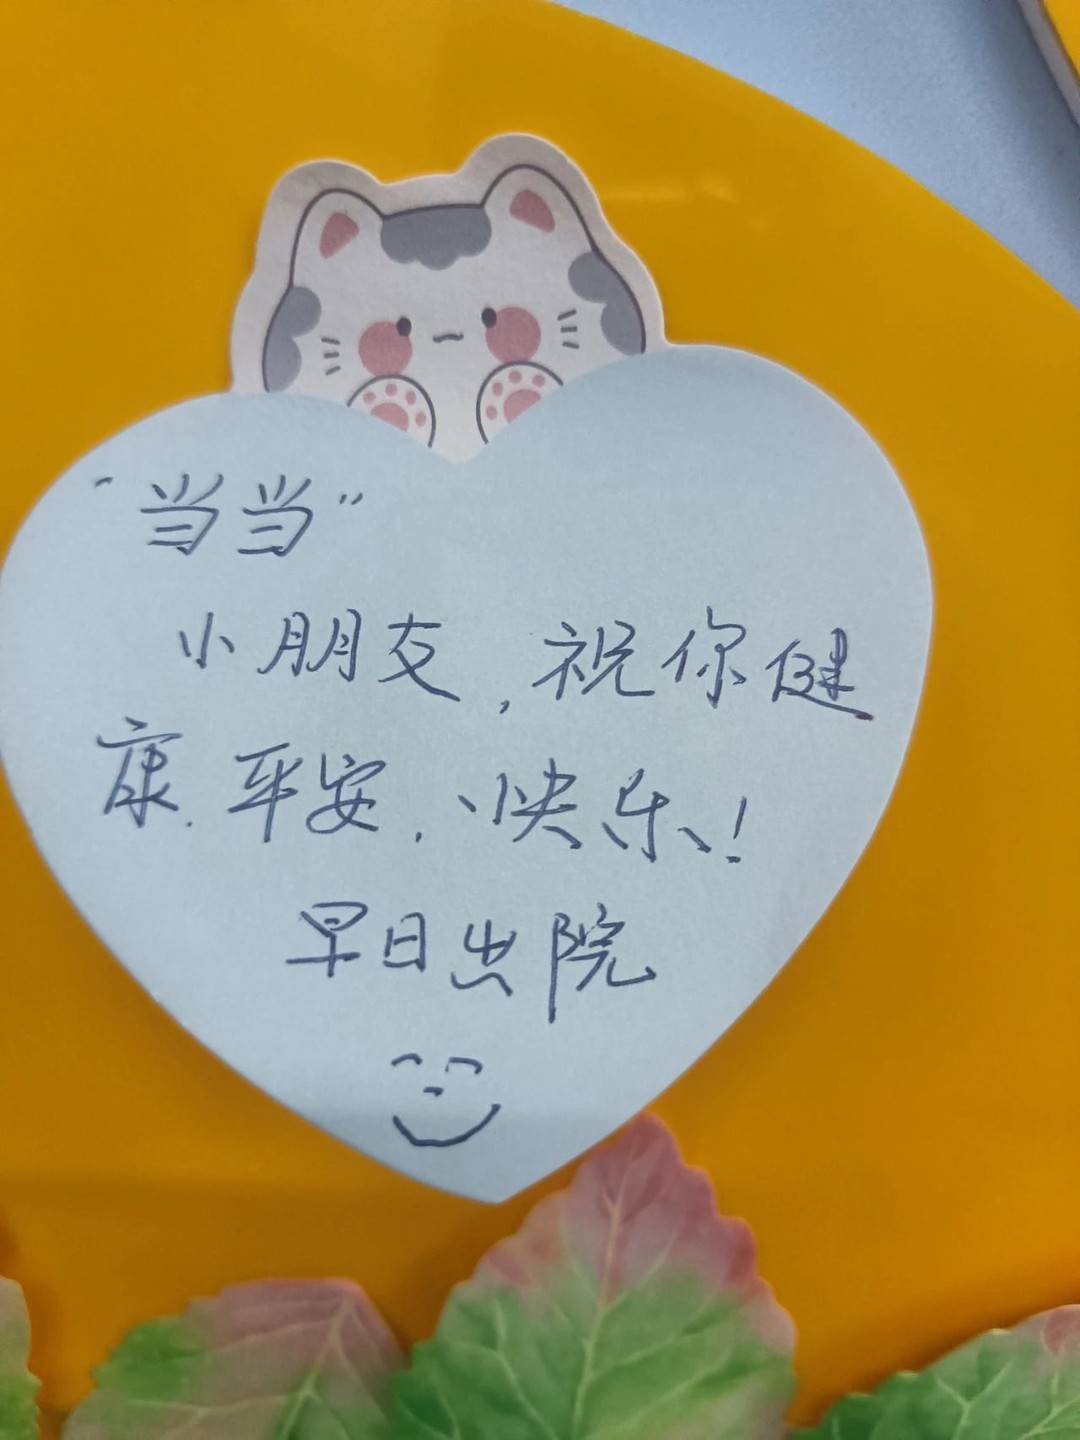 “当当”
小朋友,祝你健
康.平安.快乐!
早日出院